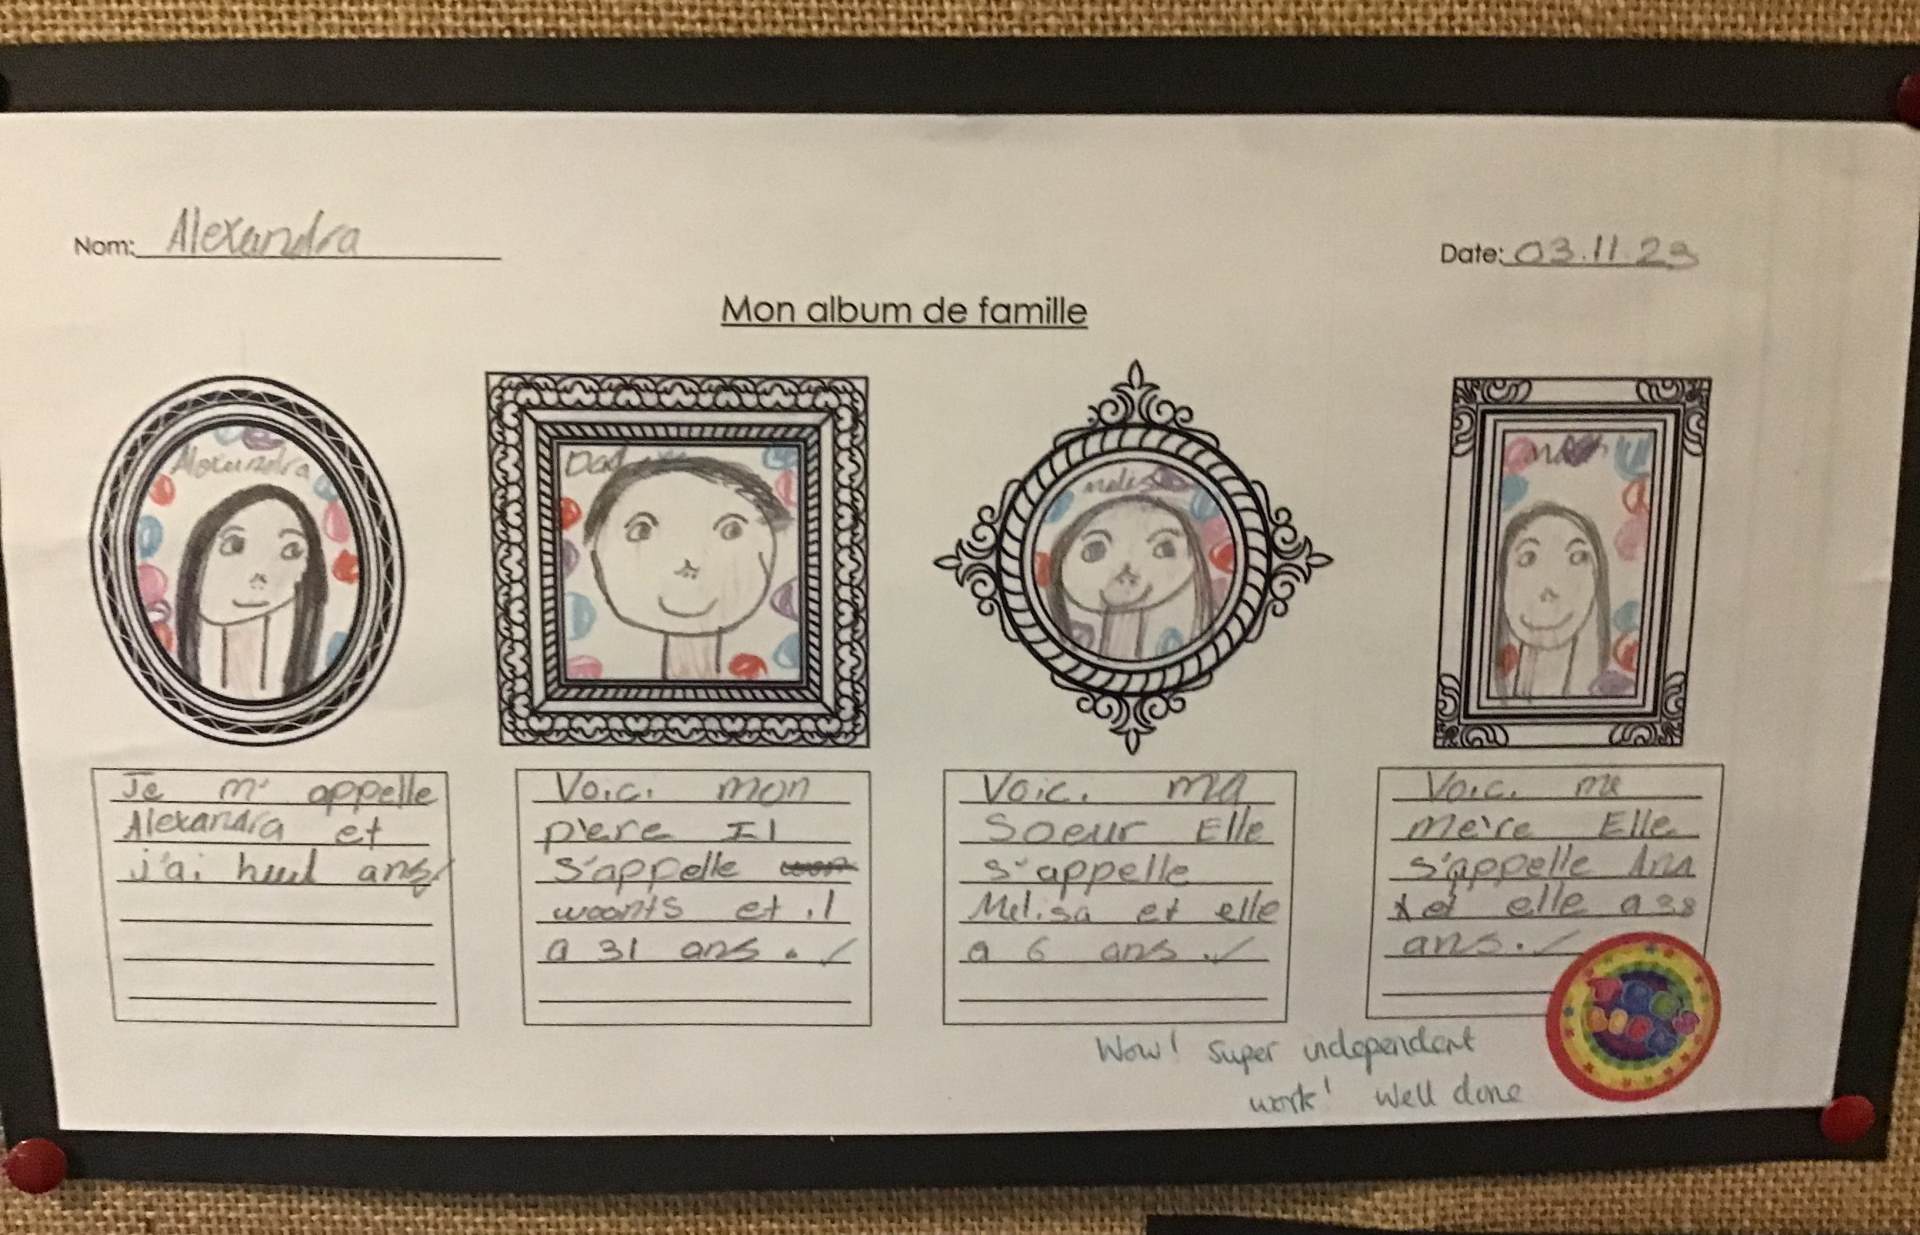 Nom: Alexandra
Date: 03.11.23
Mon album de famille
Alexandra
Dad
Je m'appelle
Alexandra et
j'ai huit ans
Voici mon
père Il
s'appelle
woonts et il
a 31 ans.
Voici ma
Soeur Elle
s'appelle
Melisa et elle
a 6 ans.
Voici ma
mère Elle
s'appelle Ana
et elle a 38
ans.
Wow! Super independent
work! Well done